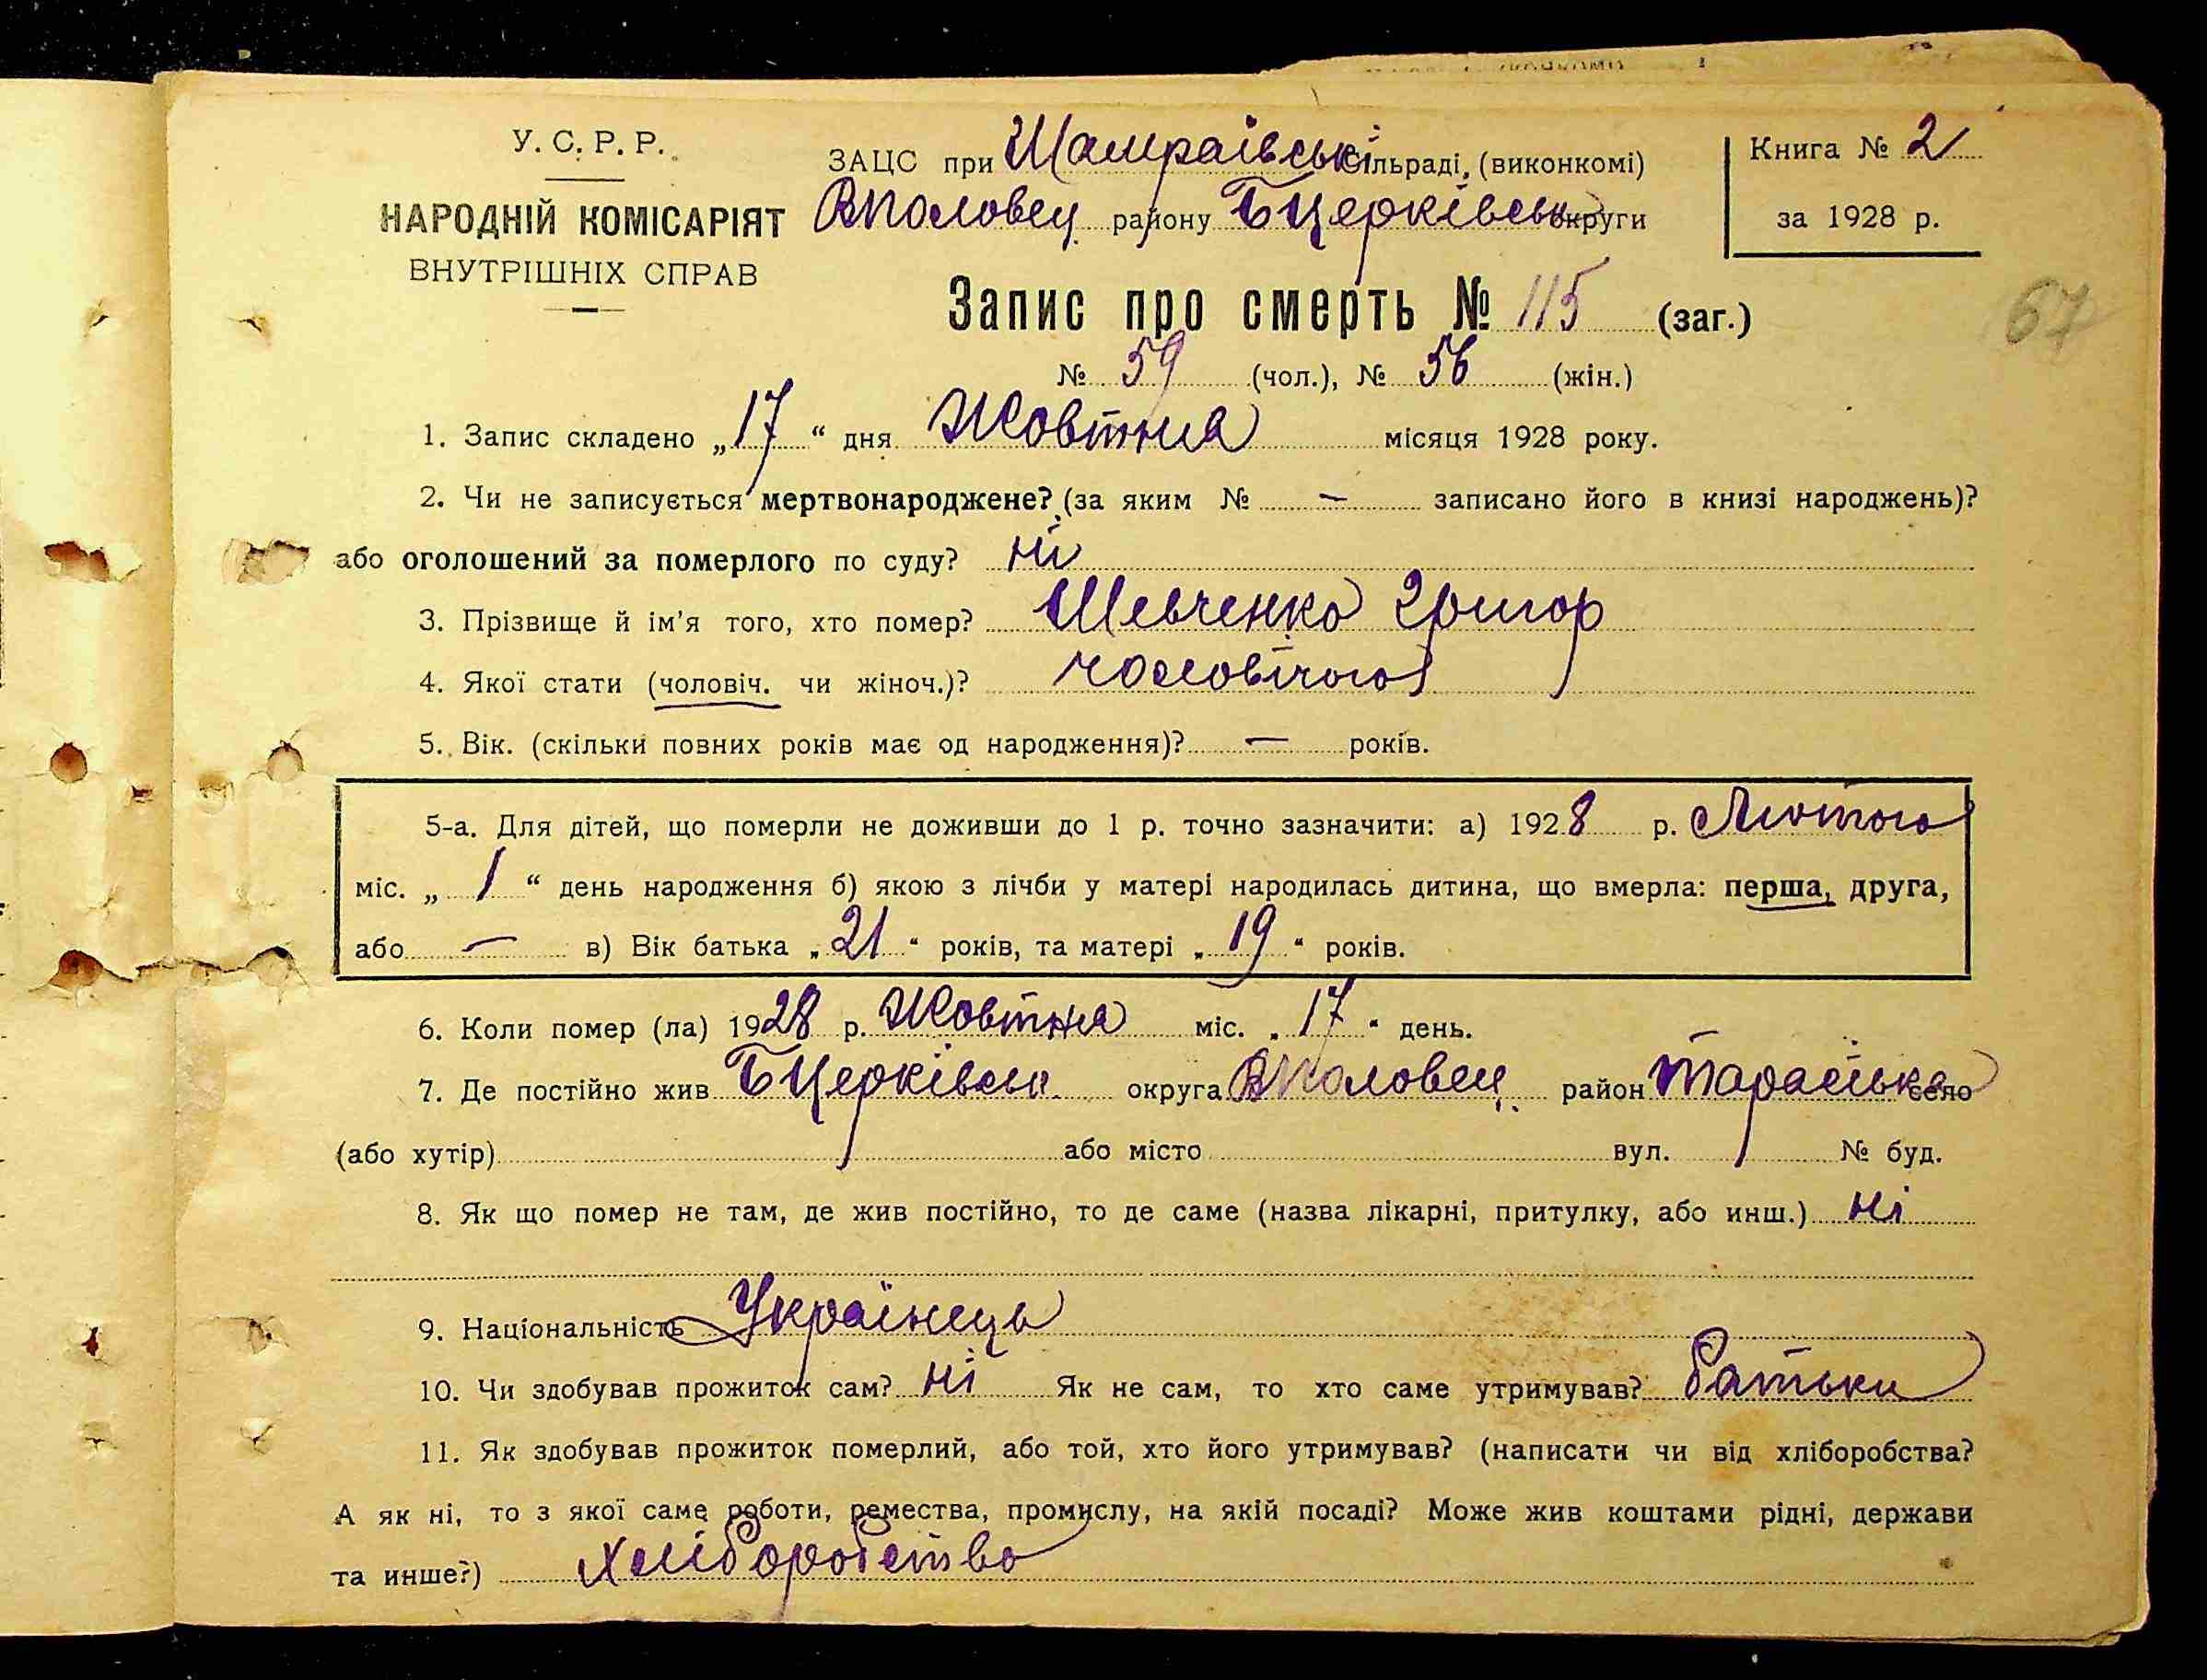 У. С. Р. Р.
НАРОДНІЙ КОМІСАРІЯТ
ВНУТРІШНІХ СПРАВ
ЗАЦС при Шамраївські сільраді, (виконкомі)
ВПоловец. району БЦерківськ округи
Книга № 2
за 1928 р.
Запис про смерть № 115 (заг.)
67
№ 59 (чол.), № 56 (жін.)
1. Запис складено „17“ дня Жовтня місяця 1928 року.
2. Чи не записується мертвонароджене? (за яким № — записано його в книзі народжень)?
або оголошений за померлого по суду? ні
3. Прізвище й ім'я того, хто помер? Шевченко Григор
4. Якої стати (чоловіч. чи жіноч.)? чоловічої
5. Вік. (скільки повних років має од народження)? — років.
5-а. Для дітей, що померли не доживши до 1 р. точно зазначити: а) 1928 р. Лютого
міс. „1“ день народження б) якою з лічби у матері народилась дитина, що вмерла: перша, друга,
або — в) Вік батька „21“ років, та матері „19“ років.
6. Коли помер (ла) 1928 р. Жовтня міс. „17“ день.
7. Де постійно жив БЦерківськ. округа ВПоловец. район село
(або хутір) або місто вул. № буд.
8. Як що помер не там, де жив постійно, то де саме (назва лікарні, притулку, або инш.) ні
9. Національність Українець
10. Чи здобував прожиток сам? ні Як не сам, то хто саме утримував? батьки
11. Як здобував прожиток померлий, або той, хто його утримував? (написати чи від хліборобства?
А як ні, то з якої саме роботи, ремества, промислу, на якій посаді? Може жив коштами рідні, держави
та инше?) Хліборобство